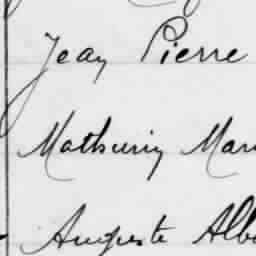 Jean Pierre
Mathurin Mar
Auguste Alb